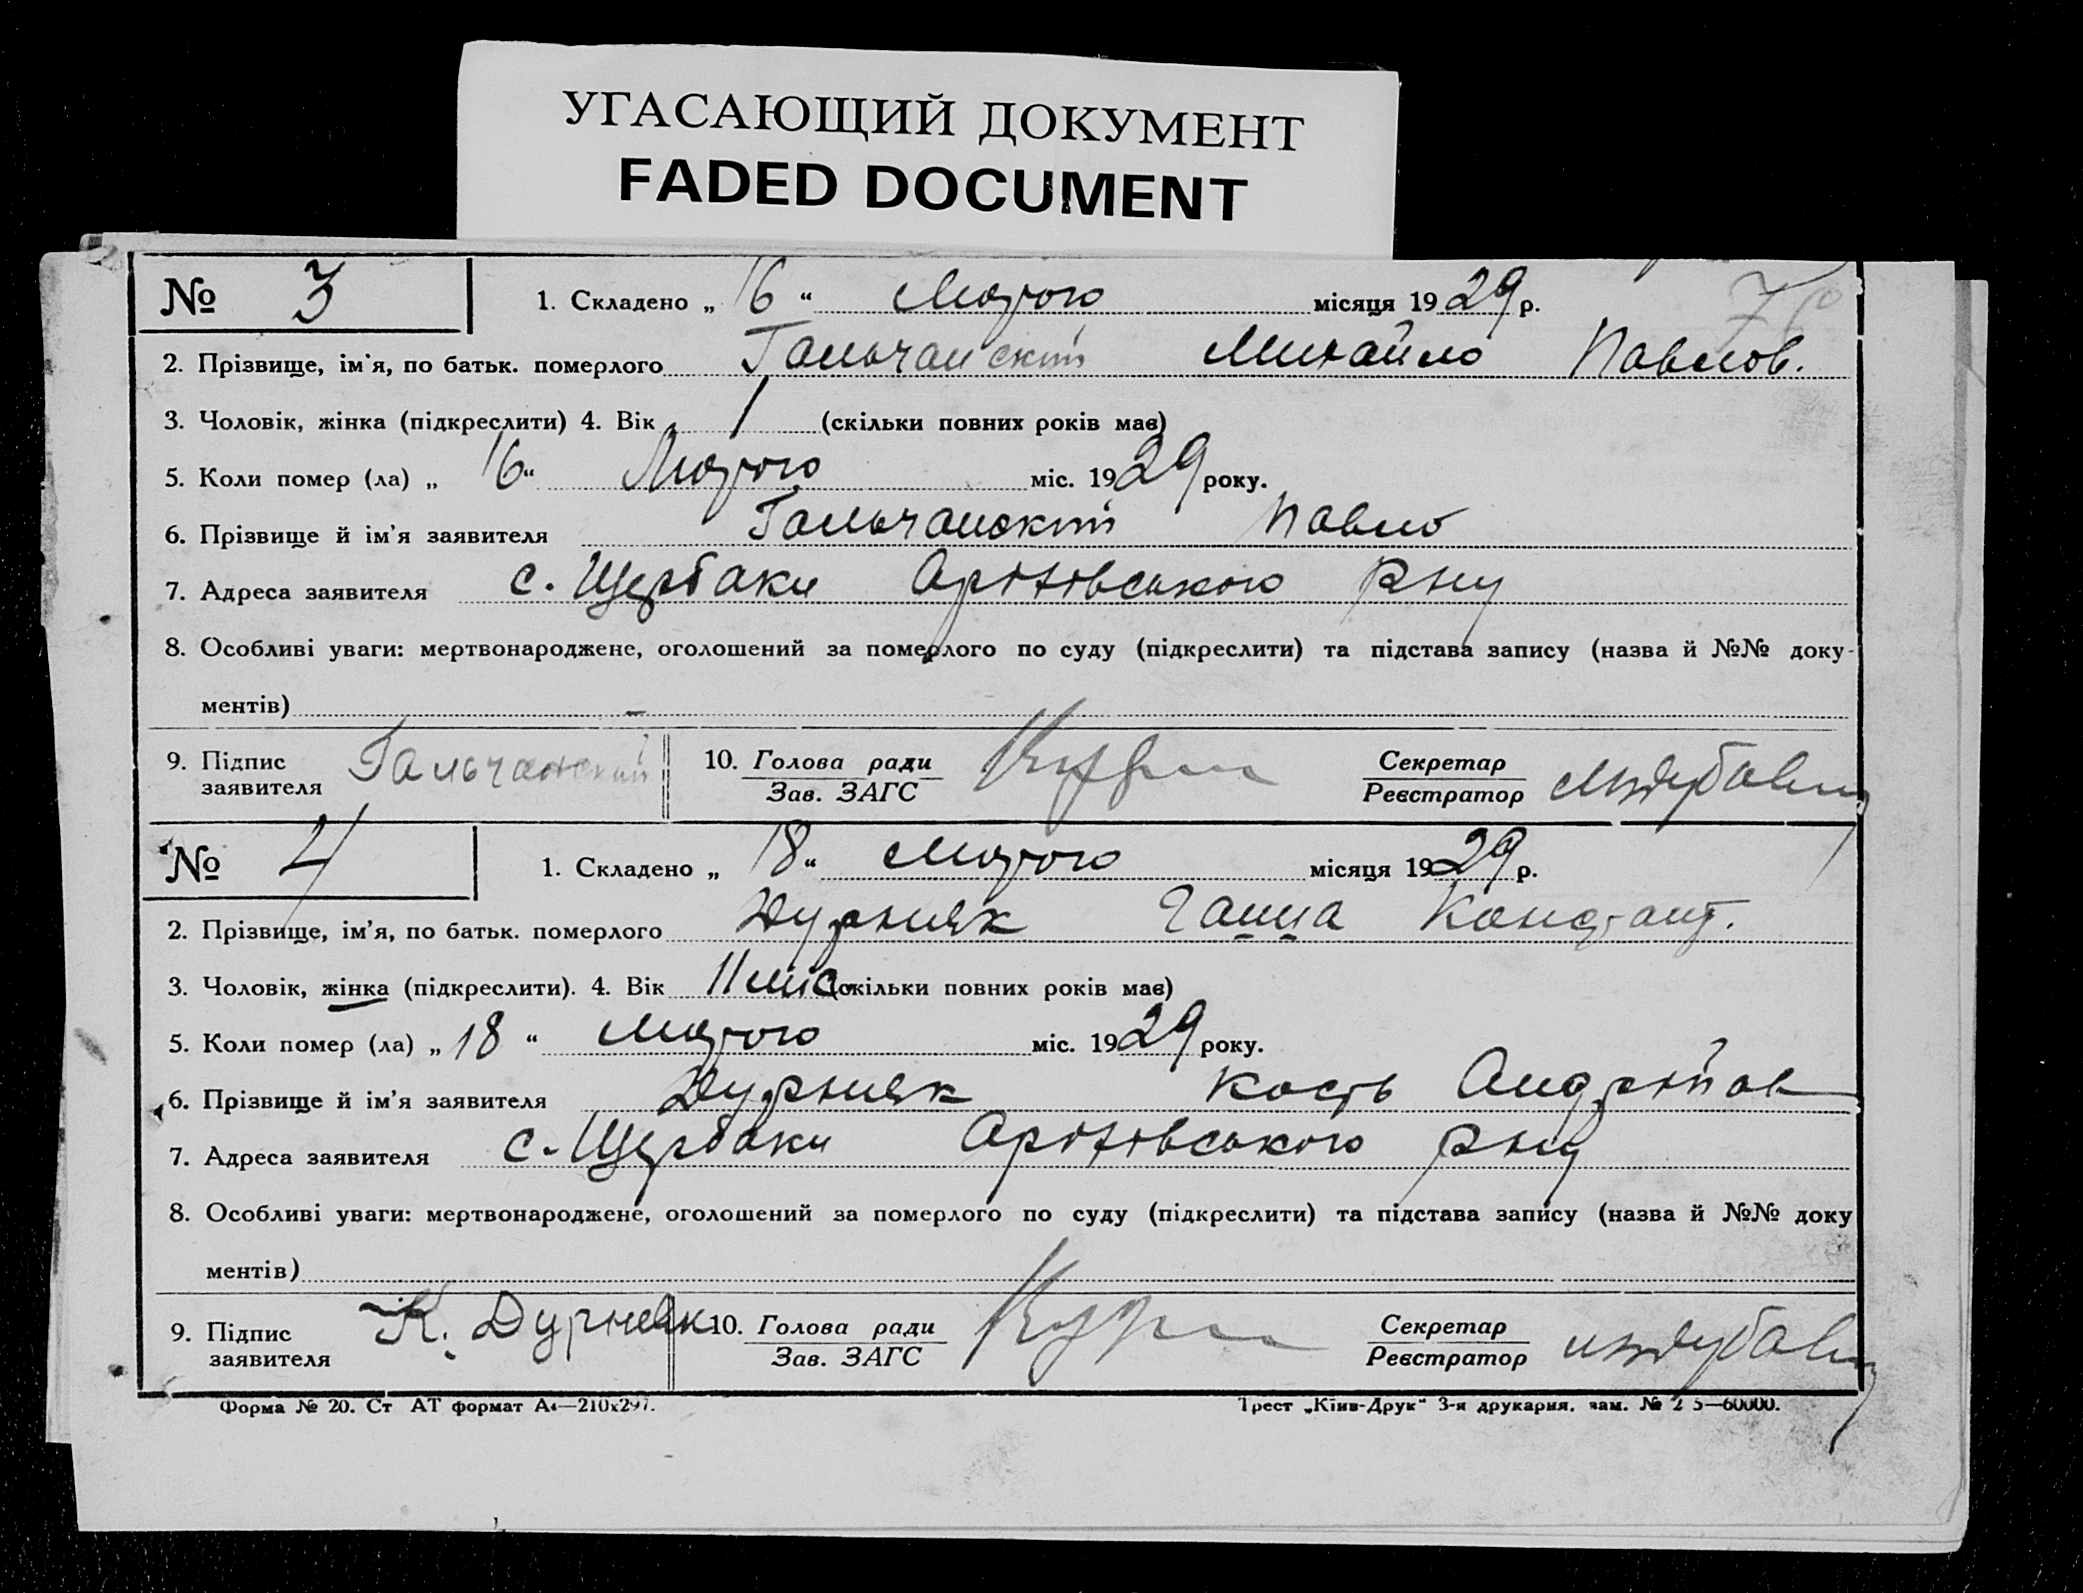 УГАСАЮЩИЙ ДОКУМЕНТ
FADED DOCUMENT
№ 3 1. Складено „ 16 “ Лютого місяця 1929 р.
2. Прізвище, ім'я, по батьк. померлого Гальчанский Михайло Павлов.
3. Чоловік, жінка (підкреслити) 4. Вік 1 (скільки повних років має)
5. Коли помер (ла) „ 16 “ Лютого міс. 1929 року.
6. Прізвище й ім'я заявителя Гальчанский Павло
7. Адреса заявителя с. Щербаки Оріхівського р-ну
8. Особливі уваги: мертвонароджене, оголошений за померлого по суду (підкреслити) та підстава запису (назва й №№ доку-
ментів) –
9. Підпис заявителя Гальчанский 10. Голова ради Зав. ЗАГС Секретар Реєстратор
№ 4 1. Складено „ 18 “ Лютого місяця 1929 р.
2. Прізвище, ім'я, по батьк. померлого Дурняк Ганна Констант.
3. Чоловік, жінка (підкреслити). 4. Вік 11 міс. (скільки повних років має)
5. Коли помер (ла) „ 18 “ Лютого міс. 1929 року.
6. Прізвище й ім'я заявителя Дурняк Кость Андрійов
7. Адреса заявителя с. Щербаки Оріхівського р-ну
8. Особливі уваги: мертвонароджене, оголошений за померлого по суду (підкреслити) та підстава запису (назва й №№ доку
ментів)
9. Підпис заявителя К. Дурняк 10. Голова ради Зав. ЗАГС Секретар Реєстратор
Форма № 20. Ст АТ формат А4—210х297. Трест „Київ-Друк“ 3-я друкарня. зам. № 2 5—60000.